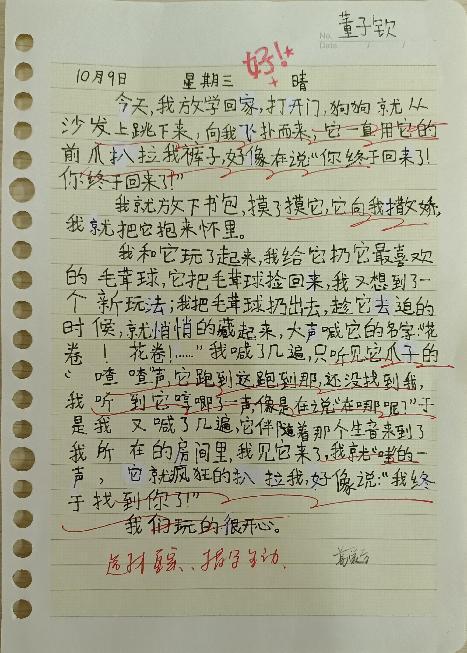 董子钦
No.
Date
好!
10月9日 星期三 晴
今天,我放学回家,打开门,狗狗就从
沙发上跳下来,向我飞扑而来,它一直用它的
前爪扒拉我裤子,好像在说“你终于回来了!
你终于回来了!”
我就放下书包,摸了摸它,它向我撒娇,
我就把它抱来怀里。
我和它玩了起来,我给它扔它最喜欢
的毛茸球,它把毛茸球捡回来,我又想到了一
个新玩法;我把毛茸球扔出去,趁它去追的
时候,就悄悄的藏起来,大声喊它的名字“花
卷!花卷!……”我喊了几遍,只听见它爪子的
“喳喳声,它跑到这跑到那,还没找到我,
我听到它哼唧了一声,像是在说“在哪呢?”于
是我又喊了几遍,它伴随着那个生音来到了
我所在的房间里,我见它来了,我就“哇的一
声,它就疯狂的扒拉我,好像说:“我终
于找到你了!”
我们玩的很开心。